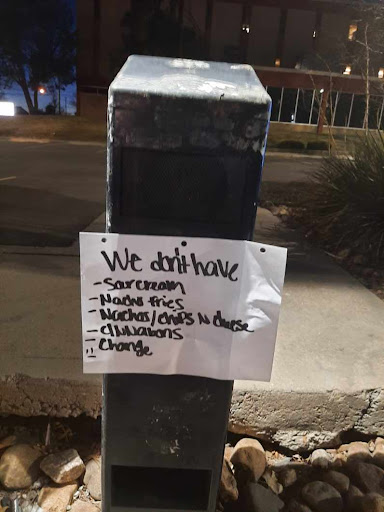 We don't have
- Sour cream
- Nacho fries
- Nachos/chips N cheese
- CINNabons
- Change